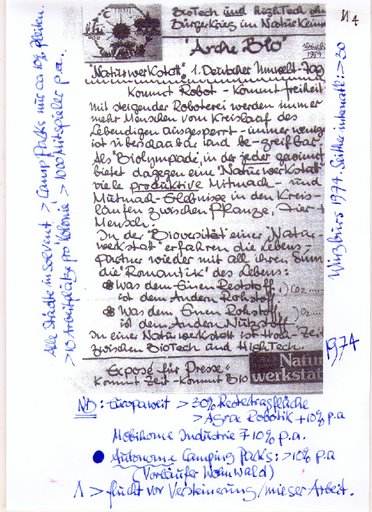 BioTech und HighTech oh
Bürgerkrieg im NaturKlima
N4
"Arche Bio"
1974
"Naturwerkstatt" 1. Deutscher Umwelt-Zoo
Kommt Robot - Kommt Freiheit
mit steigender Roboterei werden immer
mehr Menschen vom Kreislauf des
Lebendigen ausgesperrt - immer wenige
ist überschaubar und be-greifbar.
Die "Biolympiade", in der jeder gewinnt
bietet dagegen eine "Naturwerkstatt"
viele produktive Mitmach- und
Mutmach-Erlebnisse in den Kreis-
läufen zwischen Pflanze, Tier
Mensch.
In der "Bioversität" einer "Natur-
werkstatt" erfahren die Lebens-
partner wieder mit all ihren Sinn
die "Romantik" des Lebens:
Was dem Einen Reststoff
ist dem Andern Rohstoff
Was dem Einen Rohstoff
ist dem Andern Nutzstoff
In einer Naturwerkstatt ist Hoch-Zeit
zwischen BioTech und HighTech.
Exposé für Presse
Kommt Zeit - Kommt BIO
Natur
werkstatt
Alle Städte insolvent > Camp Parks nur ca 10% Pleiten.
> 10 Arbeitsplätze pro Kolonie > 1000 Mitspieler p.a.
Würzburg 1974. Seither interaktiv: > 30
1974
NB: Europaweit > 30% Resteertragsfläche
> Agrar Robotik + 10% p.a
Mobilhome Industrie 7 10% p.a.
Autonome Camping Parks: > 10% p.a
(Vorläufer Wohnwald)
1 > Flucht vor Versteinerung/mieser Arbeit.